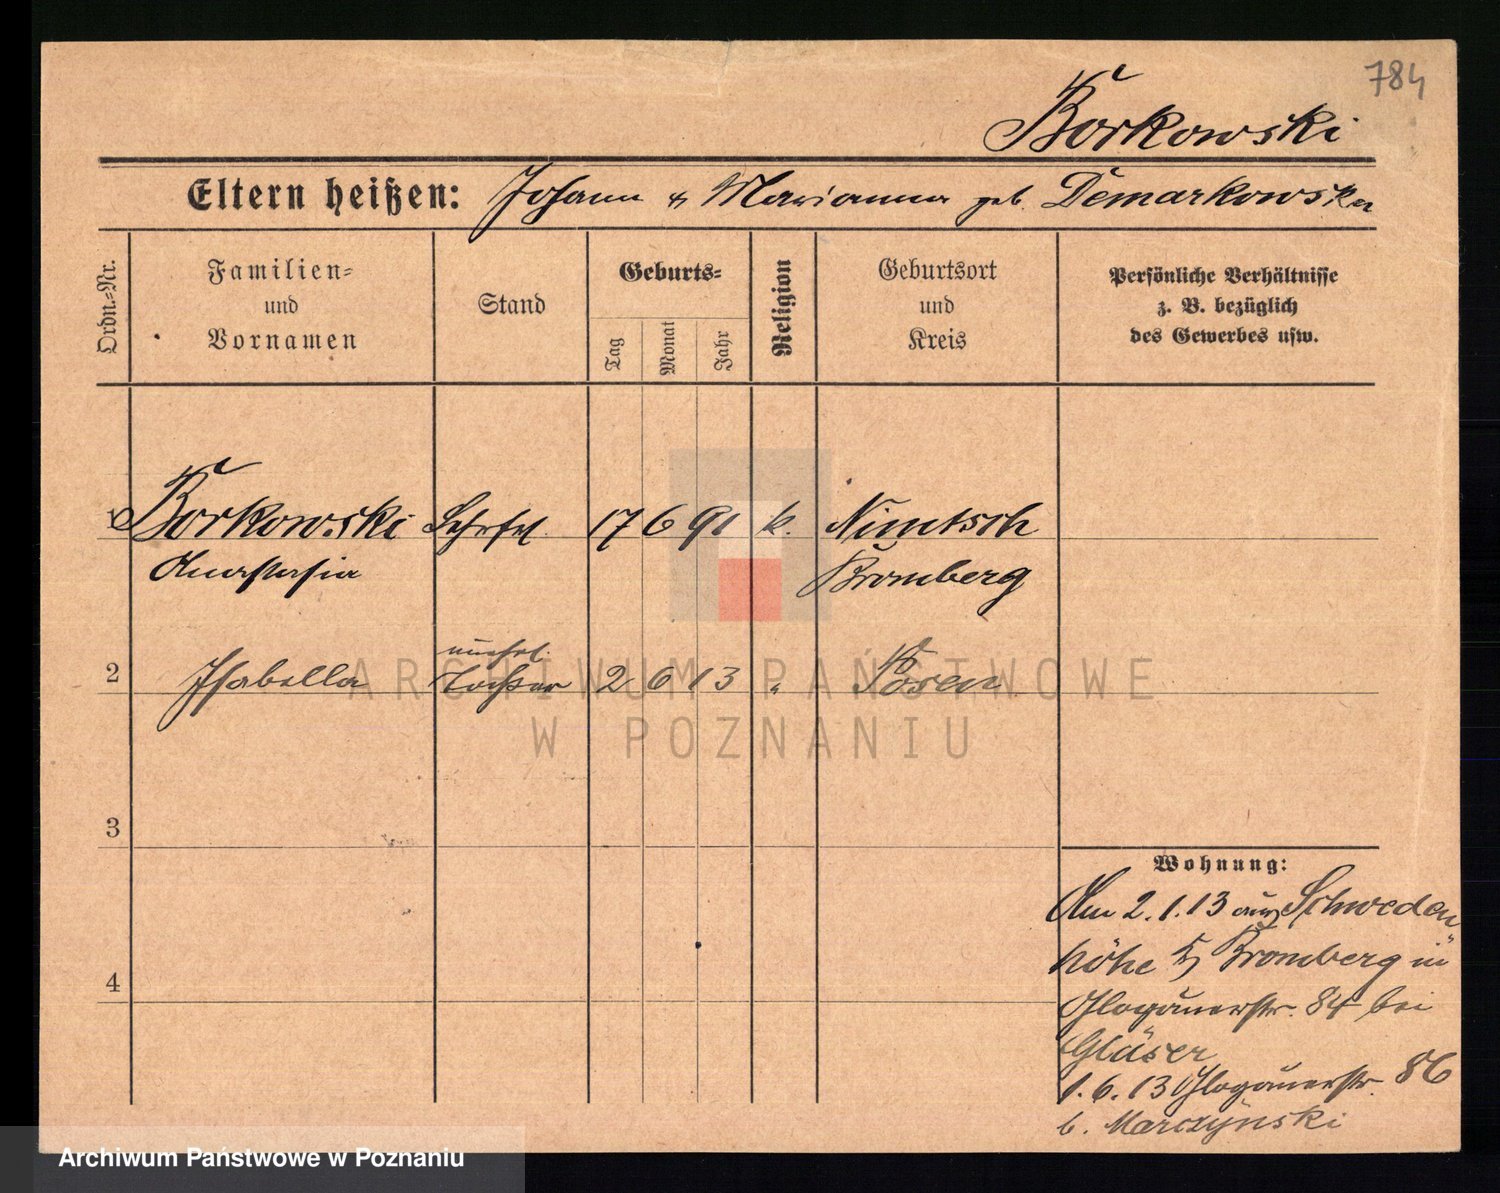 784
Borkowski
Eltern heißen: Johann & Marianna geb. Demarkowska
Ordn.=Nr.
Familien=
und
Vornamen
Stand
Geburts=
Tag
Monat
Jahr
Religion
Geburtsort
und
Kreis
Persönliche Verhältnisse
z. B. bezüglich
des Gewerbes usw.
1 Borkowski 17 6 91 k. Nimtsch
Anastasia Bromberg
unehel.
2 Isabella Tochter 2 6 13 " Posen
3
4
Wohnung:
Am 2.1.13 aus Schweden
höhe b/ Bromberg in
Glogauerstr. 84 bei
Gläser
1.6.13 Glogauerstr. 86
b. Marczynski
ARCHIWUM PAŃSTWOWE
W POZNANIU
Archiwum Państwowe w Poznaniu